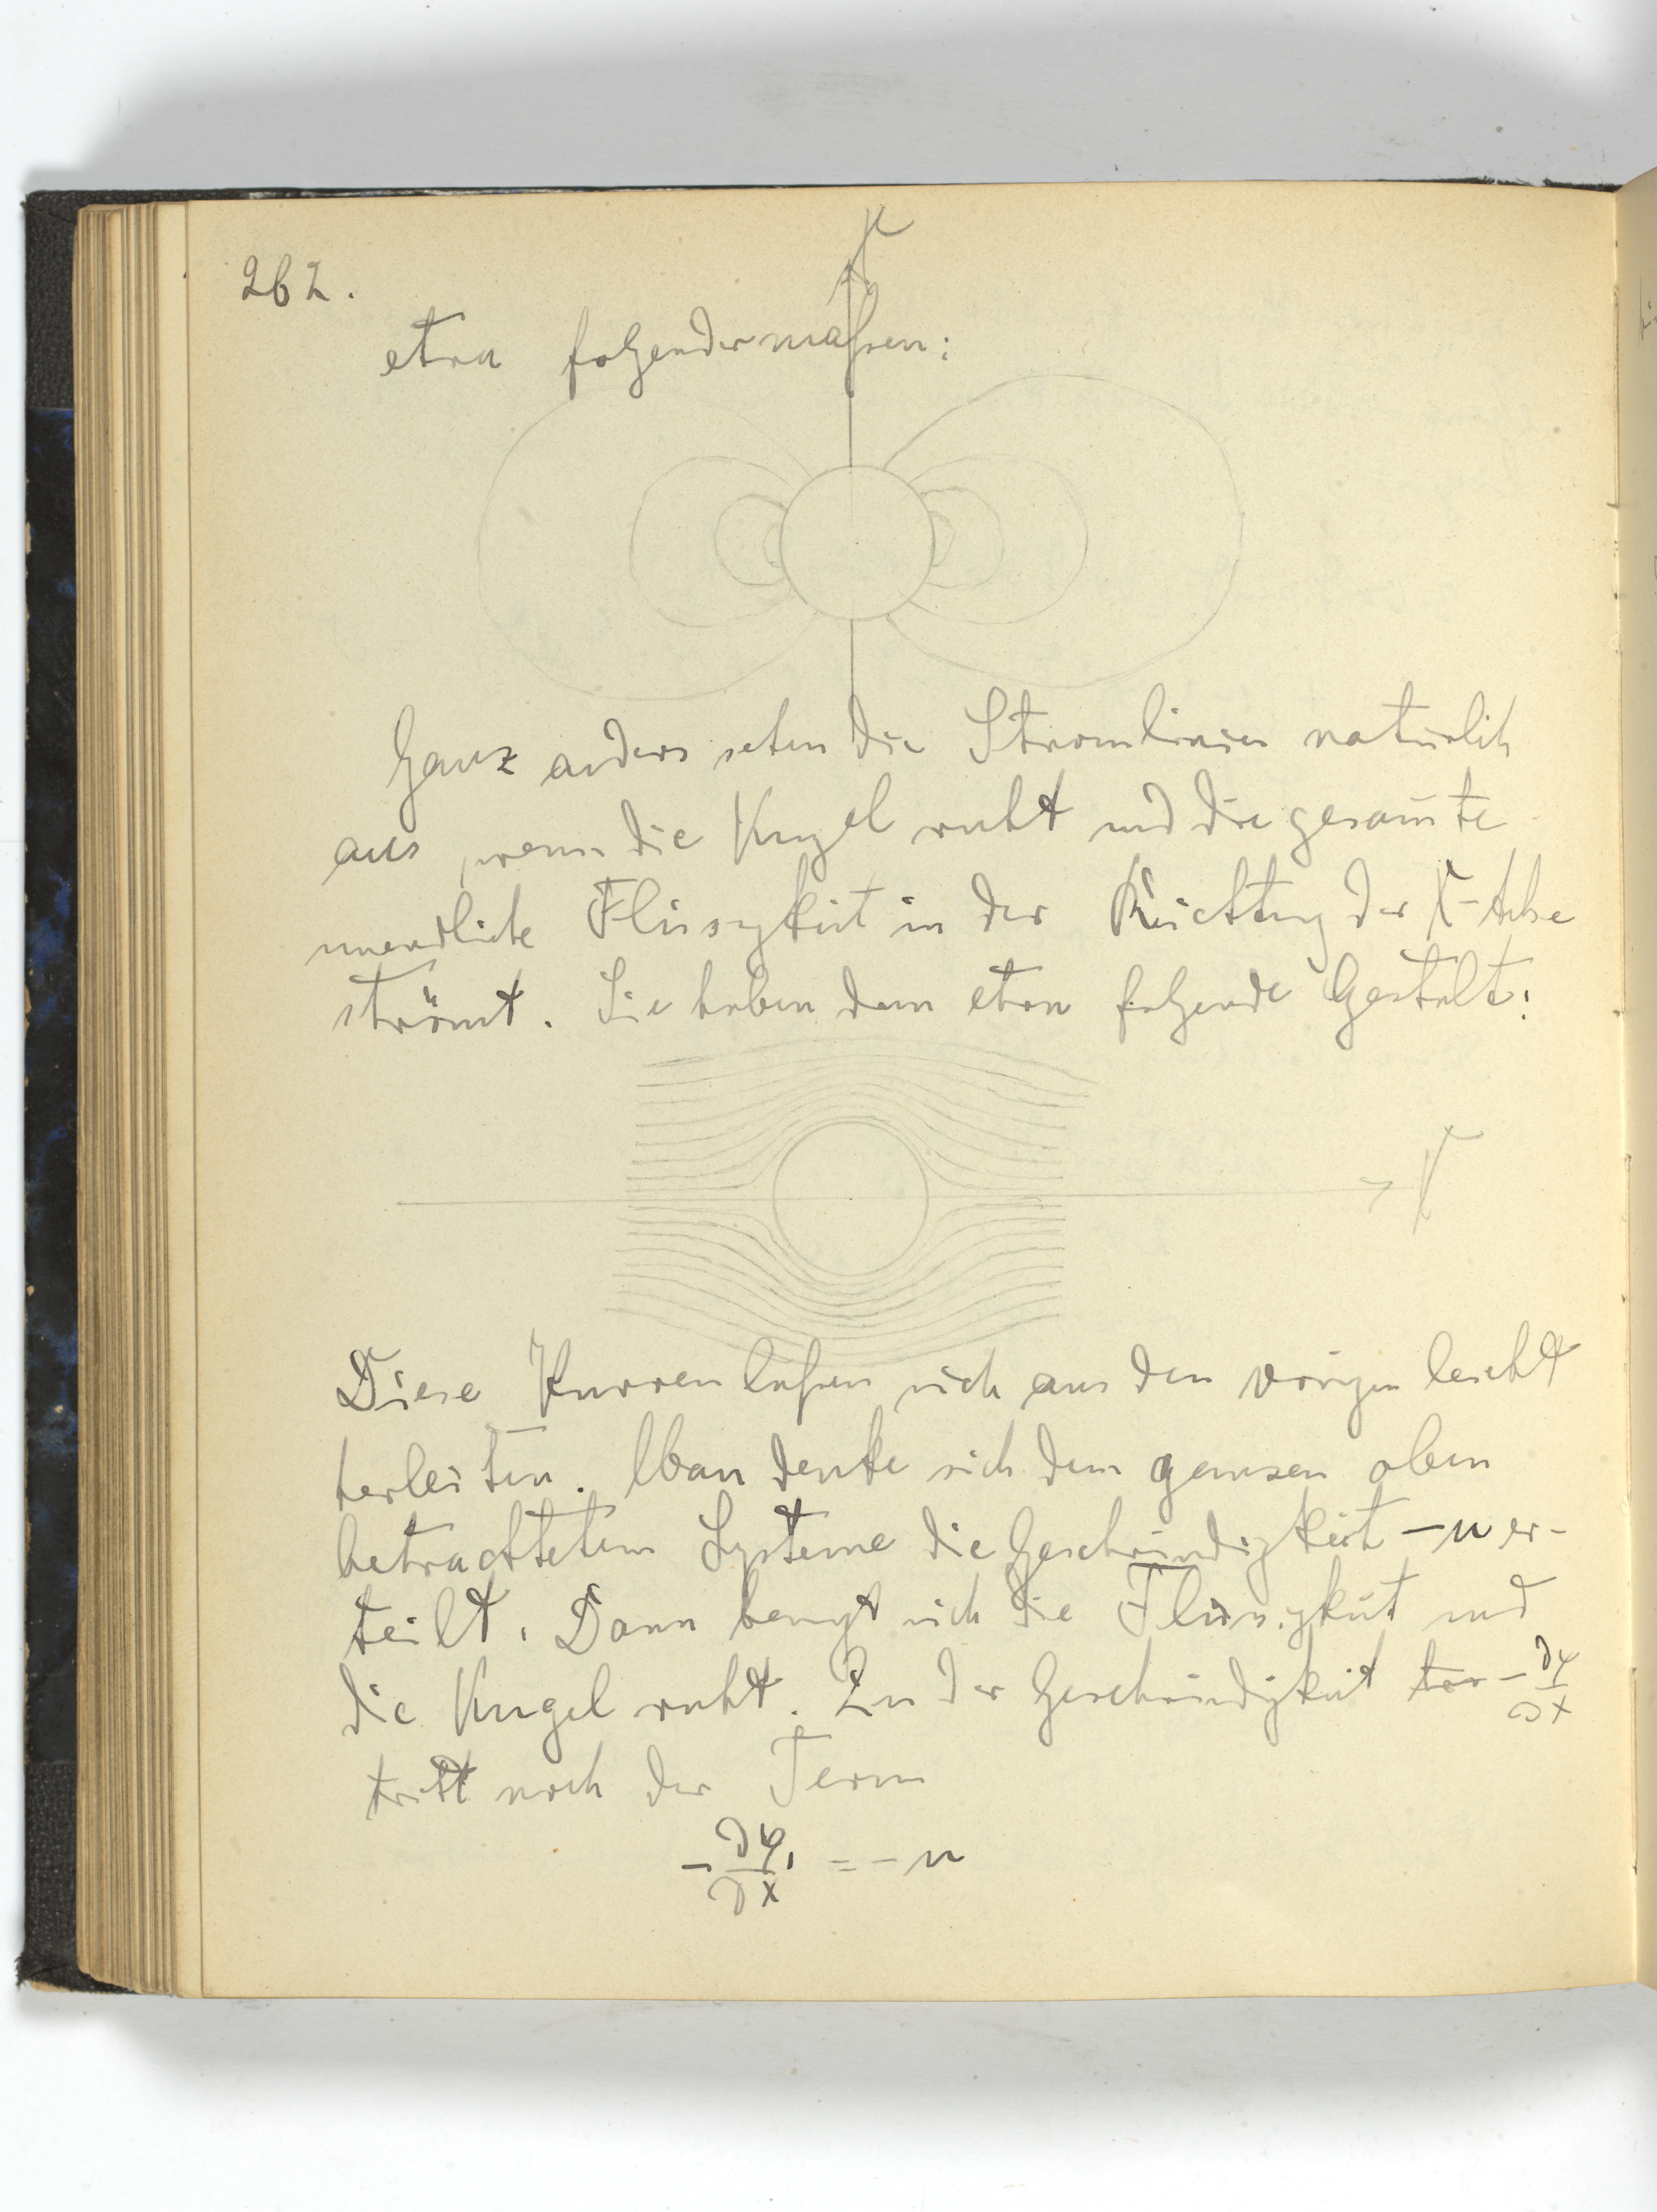 262.
X
etwa folgendermaßen:
Ganz anders sehen die Stromlinien natürlich
aus, wenn die Kugel ruht und die gesam̄te
unendliche Flüssigkeit in der Richtung der X-Achse
strömt. Sie haben dann etwa folgende Gestalt:
X
Diese Kurven laßen sich aus den vorigen leicht
herleiten. Man denke sich dem ganzen oben
betrachteten Systeme die Geschwindigkeit -u er-
teilt. Dann bewegt sich die Flüssigkeit und
die Kugel ruht. Zu der Geschwindigkeit -∂φ/∂x
tritt noch der Term
-∂φ₁/∂x = -u